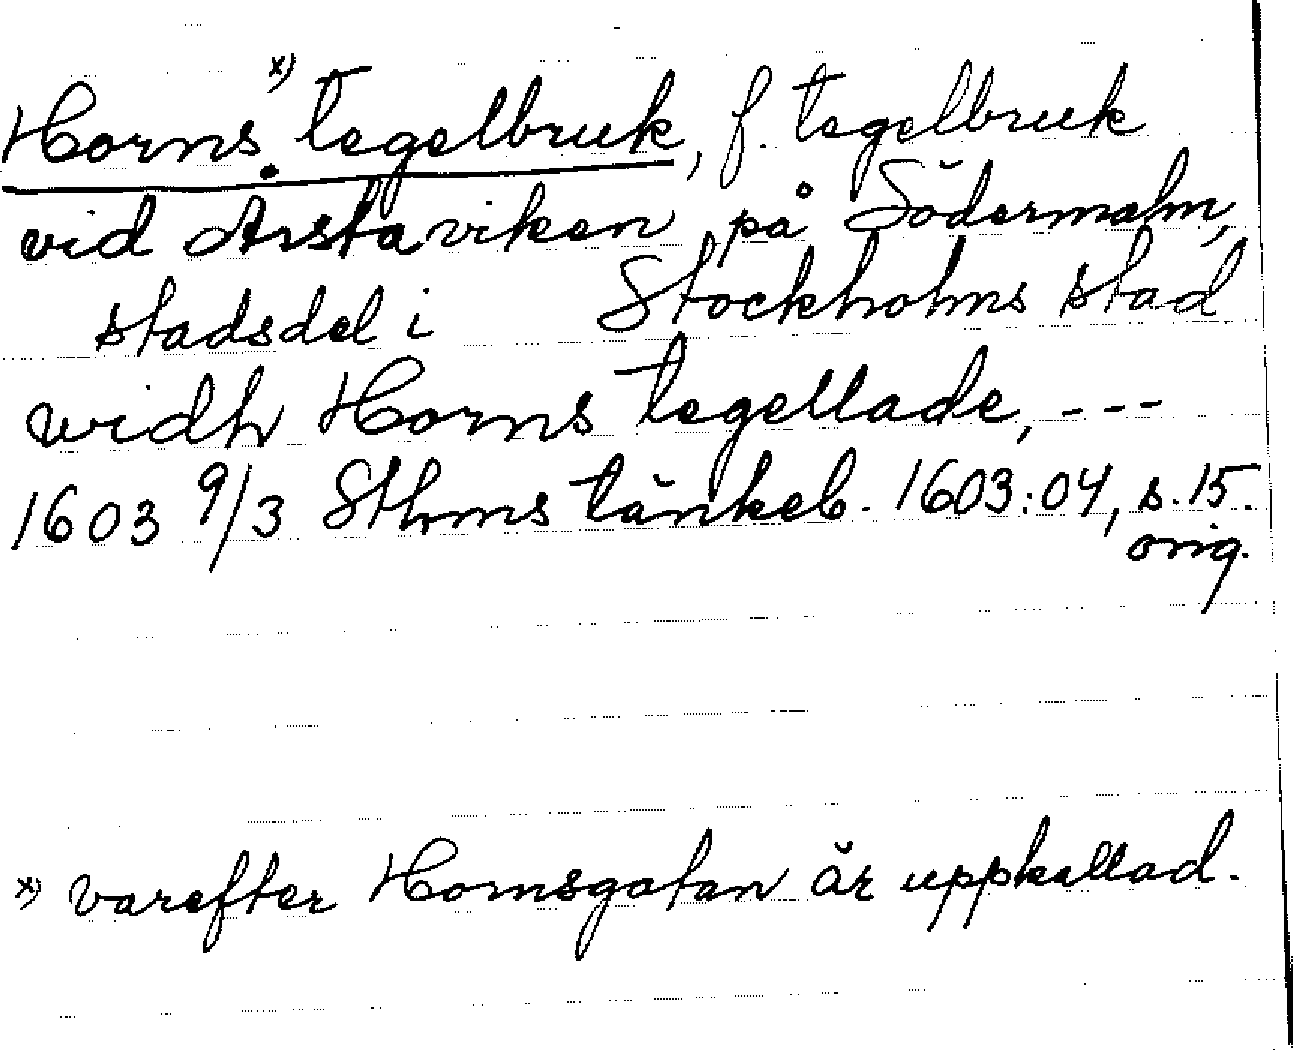 Horns x) tegelbruk, f. tegelbruk
vid Årstaviken på Södermalm,
stadsdel i Stockholms stad
widh Horns tegellade, ---
1603 9/3 Sthms tänkeb. 1603:04, s. 15.
orig.
x) varefter Hornsgatan är uppkallad.